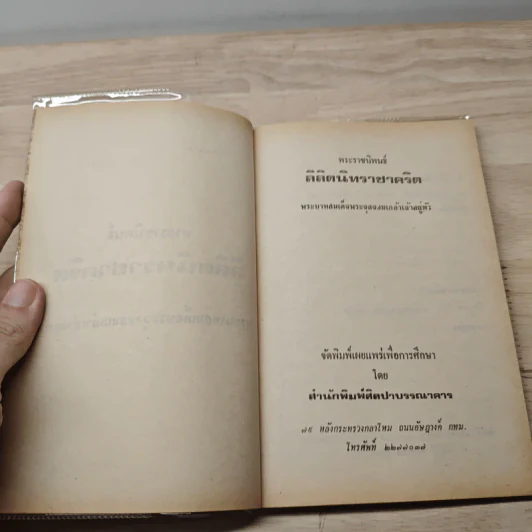 พระราชนิพนธ์
ลิลิตนิทราชาคริต
พระบาทสมเด็จพระจุลจอมเกล้าเจ้าอยู่หัว
จัดพิมพ์เผยแพร่เพื่อการศึกษา
โดย
สำนักพิมพ์ศิลปาบรรณาคาร
๗๕ หลังกระทรวงกลาโหม ถนนอัษฎางค์ กทม.
โทรศัพท์ ๒๒๗๗๐๓๗